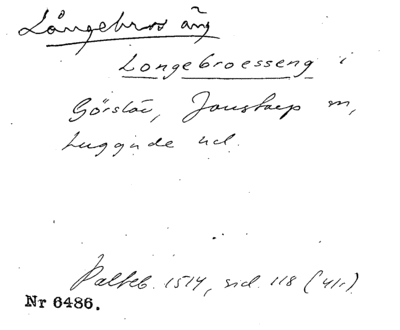 Långebros äng
Longebroesseng i
Görslöv, Jonstorp sn,
Luggude hd.
Palteb. 1514, sid. 118 (41r)
Nr 6486.